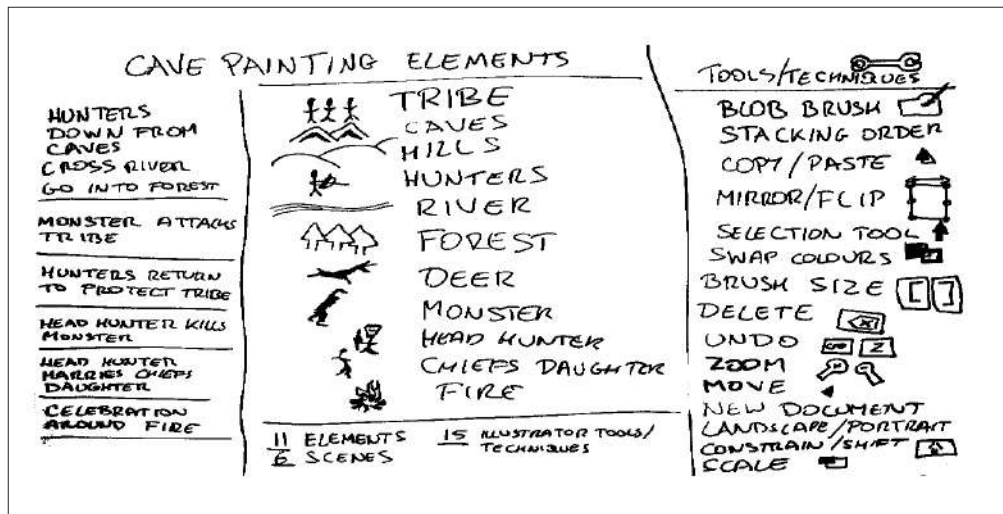 CAVE PAINTING ELEMENTS
HUNTERS
DOWN FROM
CAVES
CROSS RIVER
GO INTO FOREST
MONSTER ATTACKS
TRIBE
HUNTERS RETURN
TO PROTECT TRIBE
HEAD HUNTER KILLS
MONSTER
HEAD HUNTER
MARRIES CHIEFS
DAUGHTER
CELEBRATION
AROUND FIRE
TRIBE
CAVES
HILLS
HUNTERS
RIVER
FOREST
DEER
MONSTER
HEAD HUNTER
CHIEFS DAUGHTER
FIRE
11 ELEMENTS
6 SCENES
15 ILLUSTRATOR TOOLS/
TECHNIQUES
TOOLS/TECHNIQUES
BLOB BRUSH
STACKING ORDER
COPY/PASTE
MIRROR/FLIP
SELECTION TOOL
SWAP COLOURS
BRUSH SIZE [ ]
DELETE
UNDO Z
ZOOM
MOVE
NEW DOCUMENT
LANDSCAPE/PORTRAIT
CONSTRAIN/SHIFT
SCALE